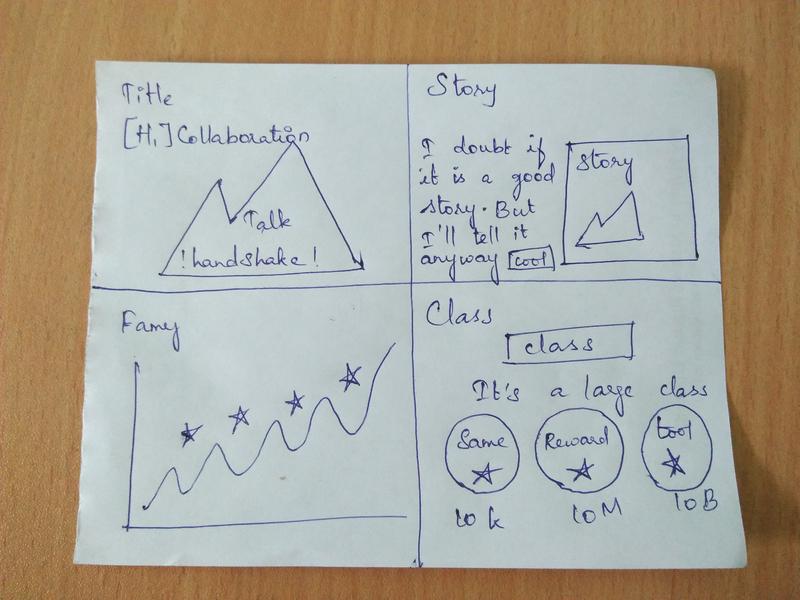 Title
[Hi] Collaboration
Talk
! handshake !
Story
I doubt if
it is a good
story. But
I'll tell it
anyway cool
story
Famy
Class
class
It's a large class
Same
Reward
tool
10 k
10 M
10 B